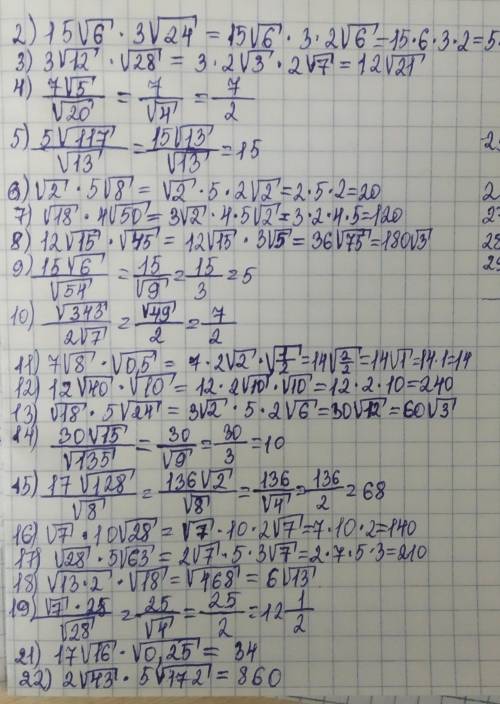 2) 15√6 · 3√24 = 15√6 · 3 · 2√6 = 15 · 6 · 3 · 2 = 5
3) 3√12 · √28 = 3 · 2√3 · 2√7 = 12√21
4) 7√5/√20 = 7/√4 = 7/2
5) 5√117/√13 = 15√13/√13 = 15
6) √2 · 5√8 = √2 · 5 · 2√2 = 2 · 5 · 2 = 20
7) √18 · 4√50 = 3√2 · 4 · 5√2 = 3 · 2 · 4 · 5 = 120
8) 12√15 · √45 = 12√15 · 3√5 = 36√75 = 180√3
9) 15√6/√54 = 15/√9 = 15/3 = 5
10) √343/2√7 = √49/2 = 7/2
11) 7√8 · √0,5 = 7 · 2√2 · √1/2 = 14√2/2 = 14√1 = 14 · 1 = 14
12) 12√40 · √10 = 12 · 2√10 · √10 = 12 · 2 · 10 = 240
13) √18 · 5√24 = 3√2 · 5 · 2√6 = 30√12 = 60√3
14) 30√15/√135 = 30/√9 = 30/3 = 10
15) 17√128/√8 = 136√2/√8 = 136/√4 = 136/2 = 68
16) √7 · 10√28 = √7 · 10 · 2√7 = 7 · 10 · 2 = 140
17) √28 · 5√63 = 2√7 · 5 · 3√7 = 2 · 7 · 5 · 3 = 210
18) √13·2 · √18 = √468 = 6√13
19) √7 · 25/√28 = 25/√4 = 25/2 = 12 1/2
21) 17√16 · √0,25 = 34
22) 2√43 · 5√172 = 860